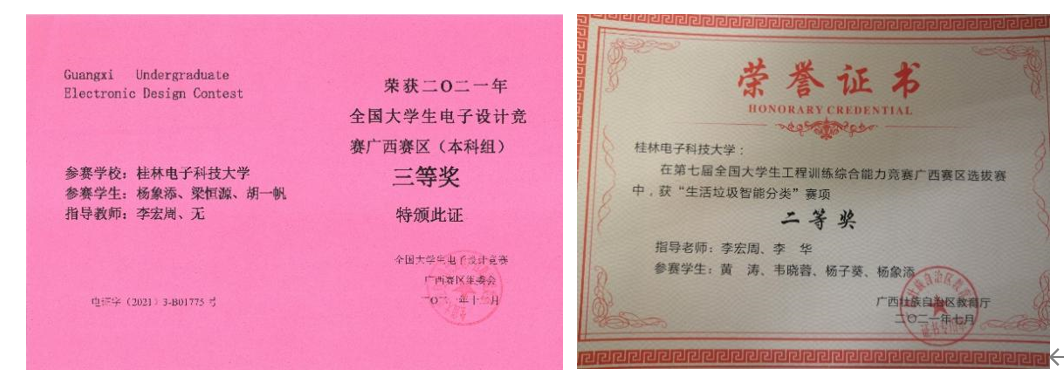 Guangxi Undergraduate
Electronic Design Contest
参赛学校：桂林电子科技大学
参赛学生：杨象添、梁恒源、胡一帆
指导教师：李宏周、无
电证字（2021）3-B01775 号
荣获二O二一年
全国大学生电子设计竞
赛广西赛区（本科组）
三等奖
特颁此证
全国大学生电子设计竞赛
广西赛区组委会
二〇二一年十一月
荣誉证书
HONORARY CREDENTIAL
桂林电子科技大学：
在第七届全国大学生工程训练综合能力竞赛广西赛区选拔赛
中，获“生活垃圾智能分类”赛项
二等奖
指导老师：李宏周、李 华
参赛学生：黄 涛、韦晓蓉、杨子葵、杨象添
广西壮族自治区教育厅
二〇二一年七月